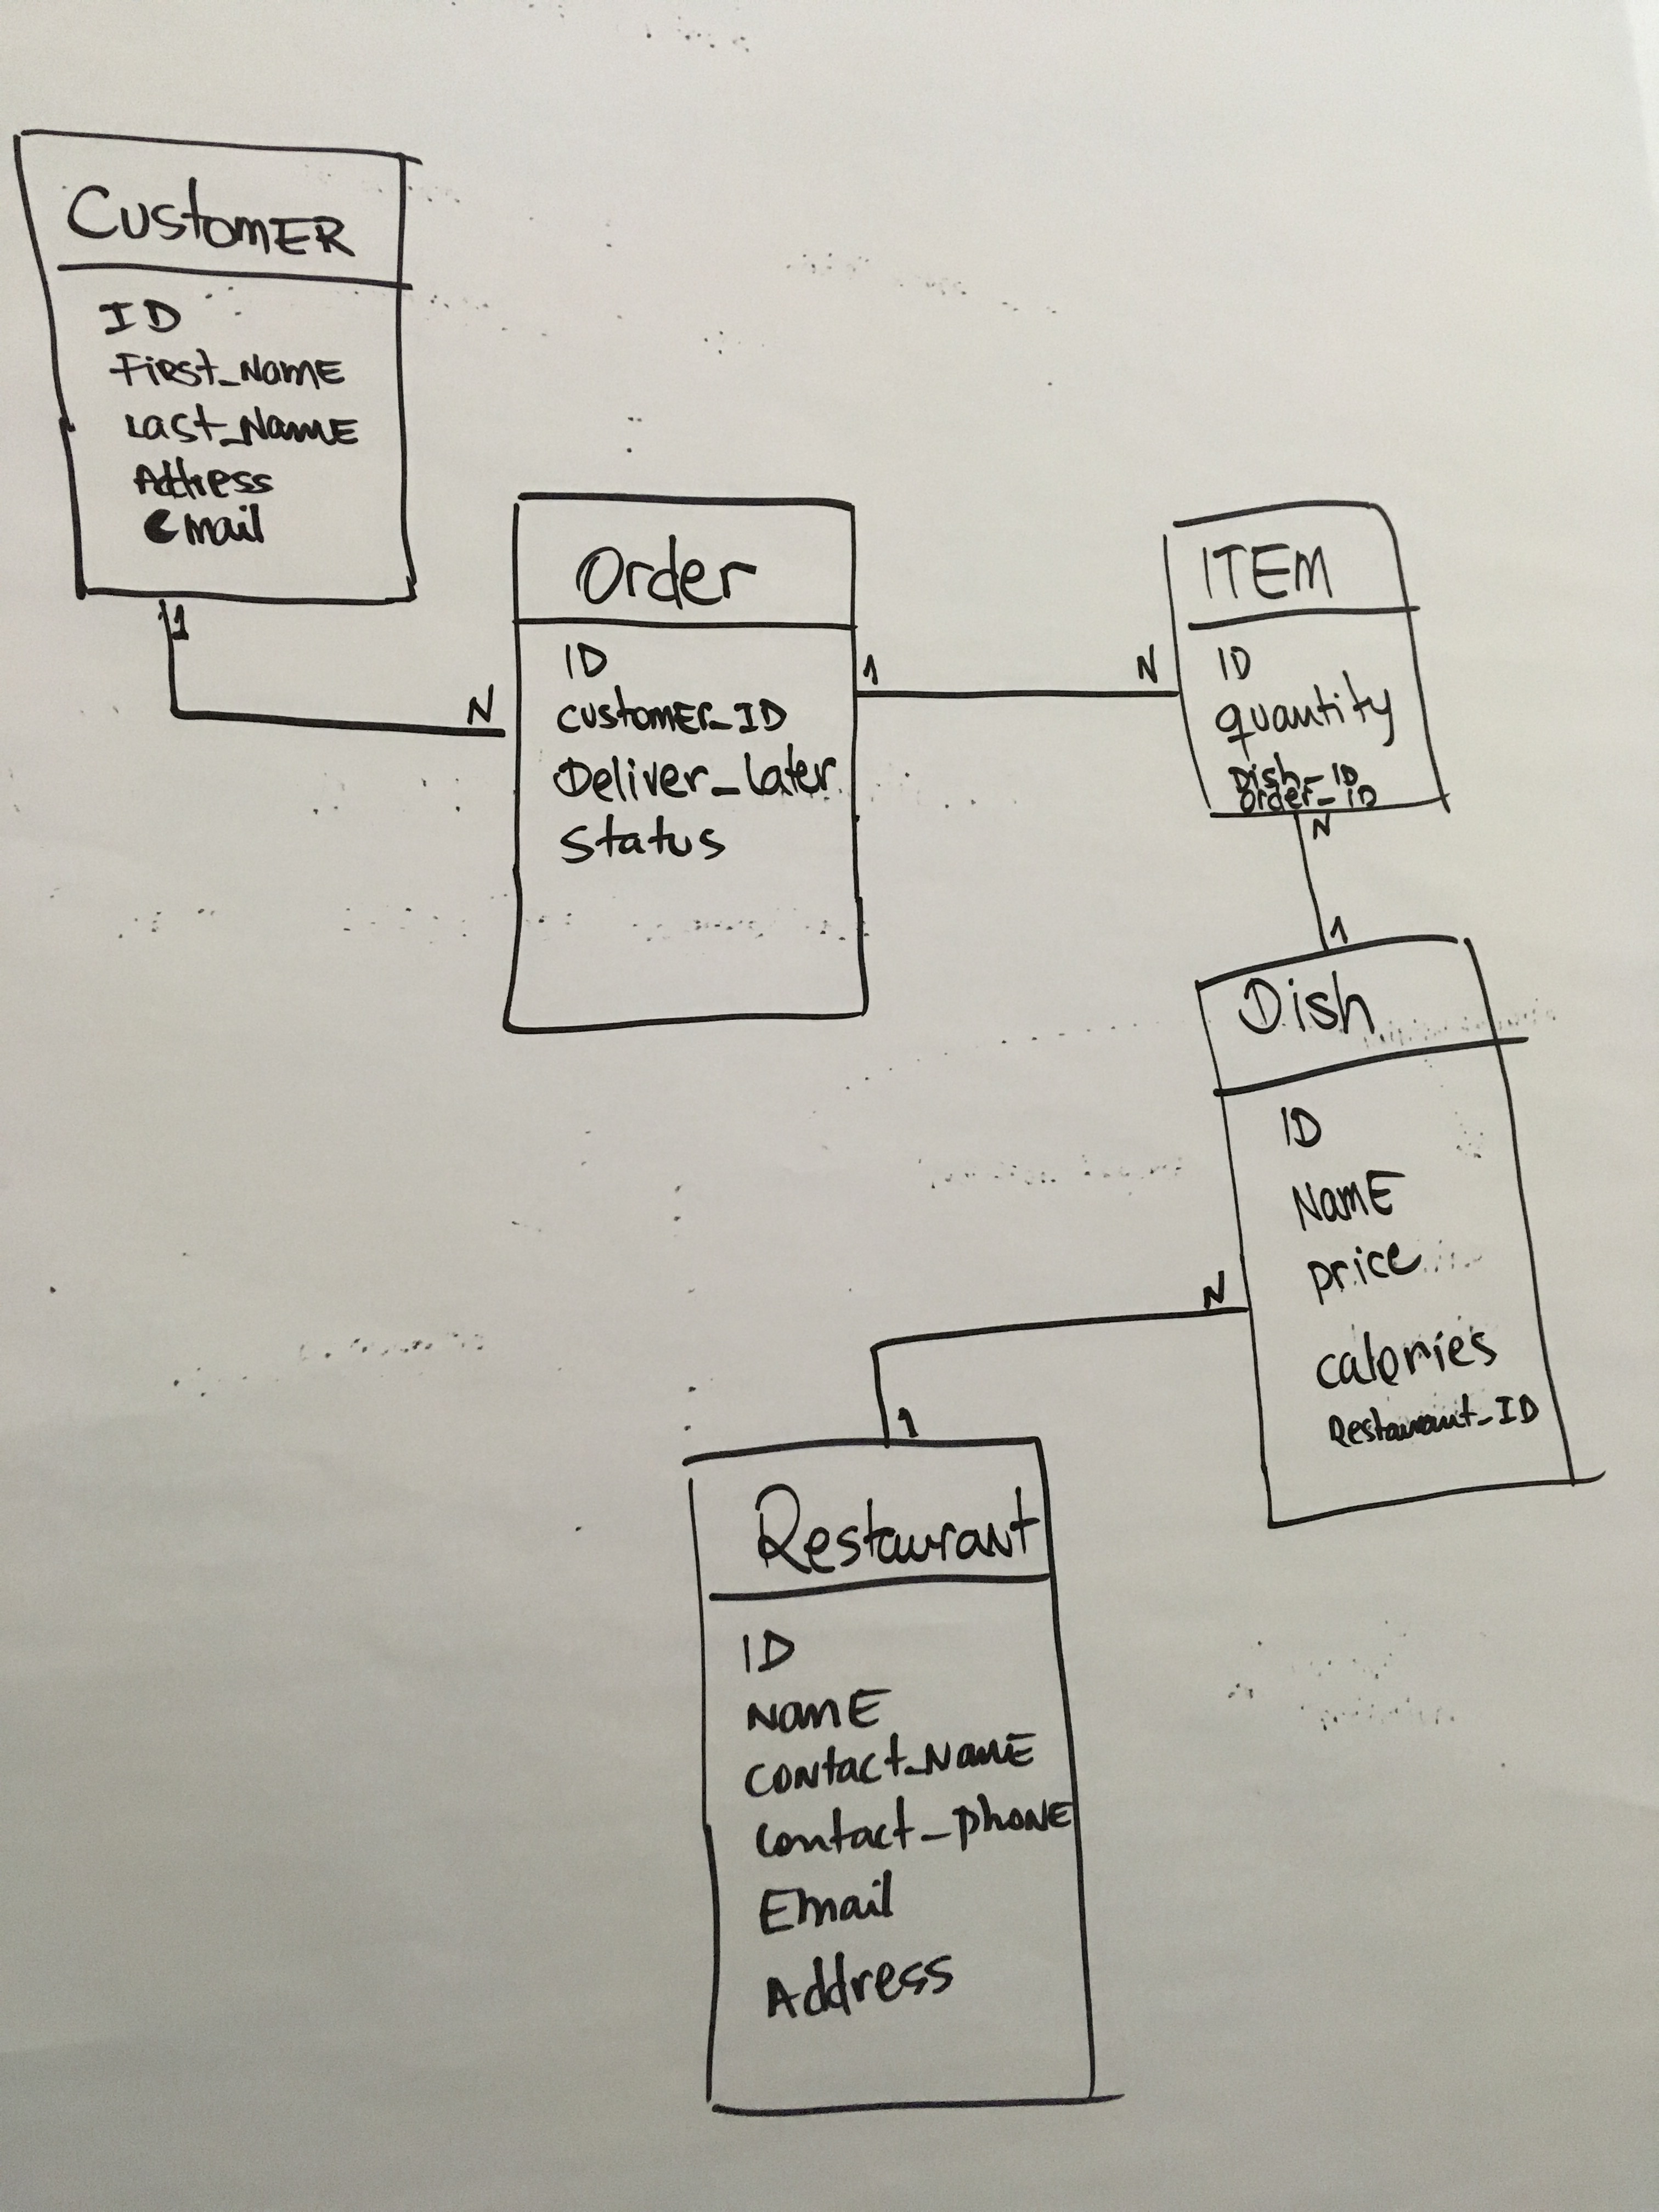 CustomER
ID
First_NamE
Last_NamE
Address
email
1
N
Order
ID
customEr_ID
Deliver_later
Status
1
N
ITEM
ID
quantity
Dish_ID
order_ID
N
1
Dish
ID
NamE
price
calories
Restaurant_ID
N
1
Restaurant
ID
NamE
contact_NamE
contact_phoNE
Email
Address